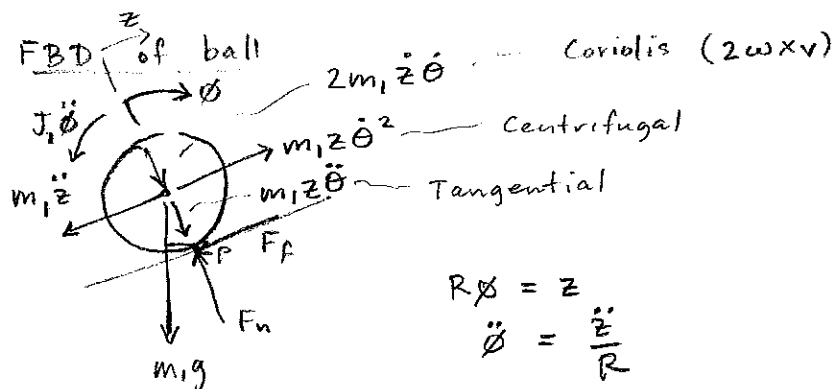 z
FBD of ball
ø
J₁ø̈
2m₁żθ̇ Coriolis (2ω×v)
m₁zθ̇² Centrifugal
m₁z̈
m₁zθ̈ Tangential
P
F_f
F_n
m₁g
Rø = z
ø̈ = z̈/R